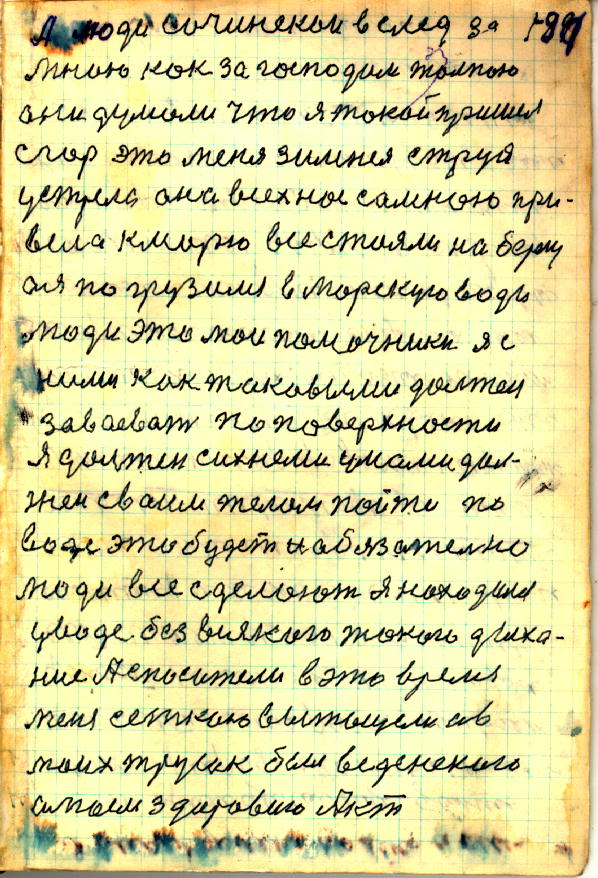 А люди сочинскои вслед за 1991
мною как за господом толпою
они думали что я такой пришел
с гор это меня зимнея струя
устрела она всех нас самною при-
вела кморю все стояли на берегу
а я погрузиля в морскую воду
люди это мои помочники я с
ними как таковыми должен
заваевать по поверхности
Я должен сихнеми умами дол-
жен сваим телом пойти по
воде это будет и обязателно
люди все сделоют Я находился
у воде без всякого такого дыха-
ние А спосители в это время
меня сеткаю вытощели а в
моих трусах был веденского
здоровию Акт